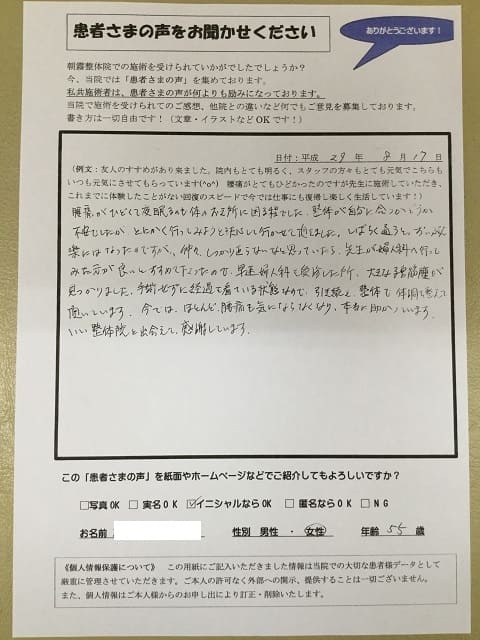 患者さまの声をお聞かせください
ありがとうございます！
朝霧整体院での施術を受けられていかがでしたでしょうか？
今、当院では「患者さまの声」を集めております。
私共施術者は、患者さまの声が何よりも励みになっております。
当院で施術を受けられてのご感想、他院との違いなど何でもご意見を募集しております。
書き方は一切自由です！（文章・イラストなどOKです！）
日付：平成 29 年 8 月 17 日
（例文：友人のすすめがあり来ました。院内もとても明るく、スタッフの方々もとても元気でこちらも
いつも元気にさせてもらっています(^o^) 腰痛がとてもひどかったのですが先生に施術していただき、
これまでに体験したことがない回復のスピードで今では仕事にも復帰し楽しく生活しています！）
腰痛がひどくて夜眠るのも体の
整体が自分に合うかどうか
不安でしたが、とにかく行ってみようと
しばらく通うと、
楽にはなったのですが、仲々、しっかり直らないなと思っていたら、先生が婦人科へ行って
みた方が良いとすすめて下さったので、早速婦人科を受診した所、大きな子宮筋腫が
見つかりました。手術せずに経過を看ている状態なので、引き続き、整体で体調を整えて
頂いています。今では、ほとんど、腰痛も気にならなくなり、本当に助かっています。
いい整体院と出会えて、感謝しています。
この「患者さまの声」を紙面やホームページなどでご紹介してもよろしいですか？
□写真OK □実名OK ☑イニシャルならOK □匿名ならOK □NG
お名前 性別 男性 ・ 女性 年齢 55 歳
《個人情報保護について》 この用紙にご記入いただきました情報は当院での大切な患者様データとして
厳重に管理させていただきます。ご本人の許可なく外部への開示、提供することは一切ございません。
また、個人情報はご本人様からのお申し出により訂正・削除いたします。